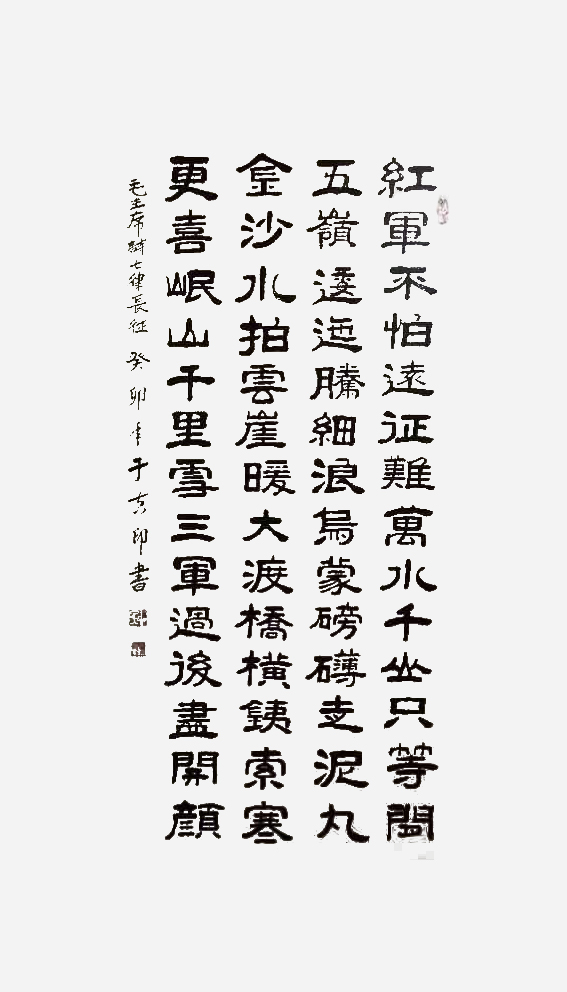 紅軍不怕遠征難萬水千山只等閒
五嶺逶迤騰細浪烏蒙磅礴走泥丸
金沙水拍雲崖暖大渡橋橫鐵索寒
更喜岷山千里雪三軍過後盡開顏
毛主席 七律長征 癸卯年于 印書